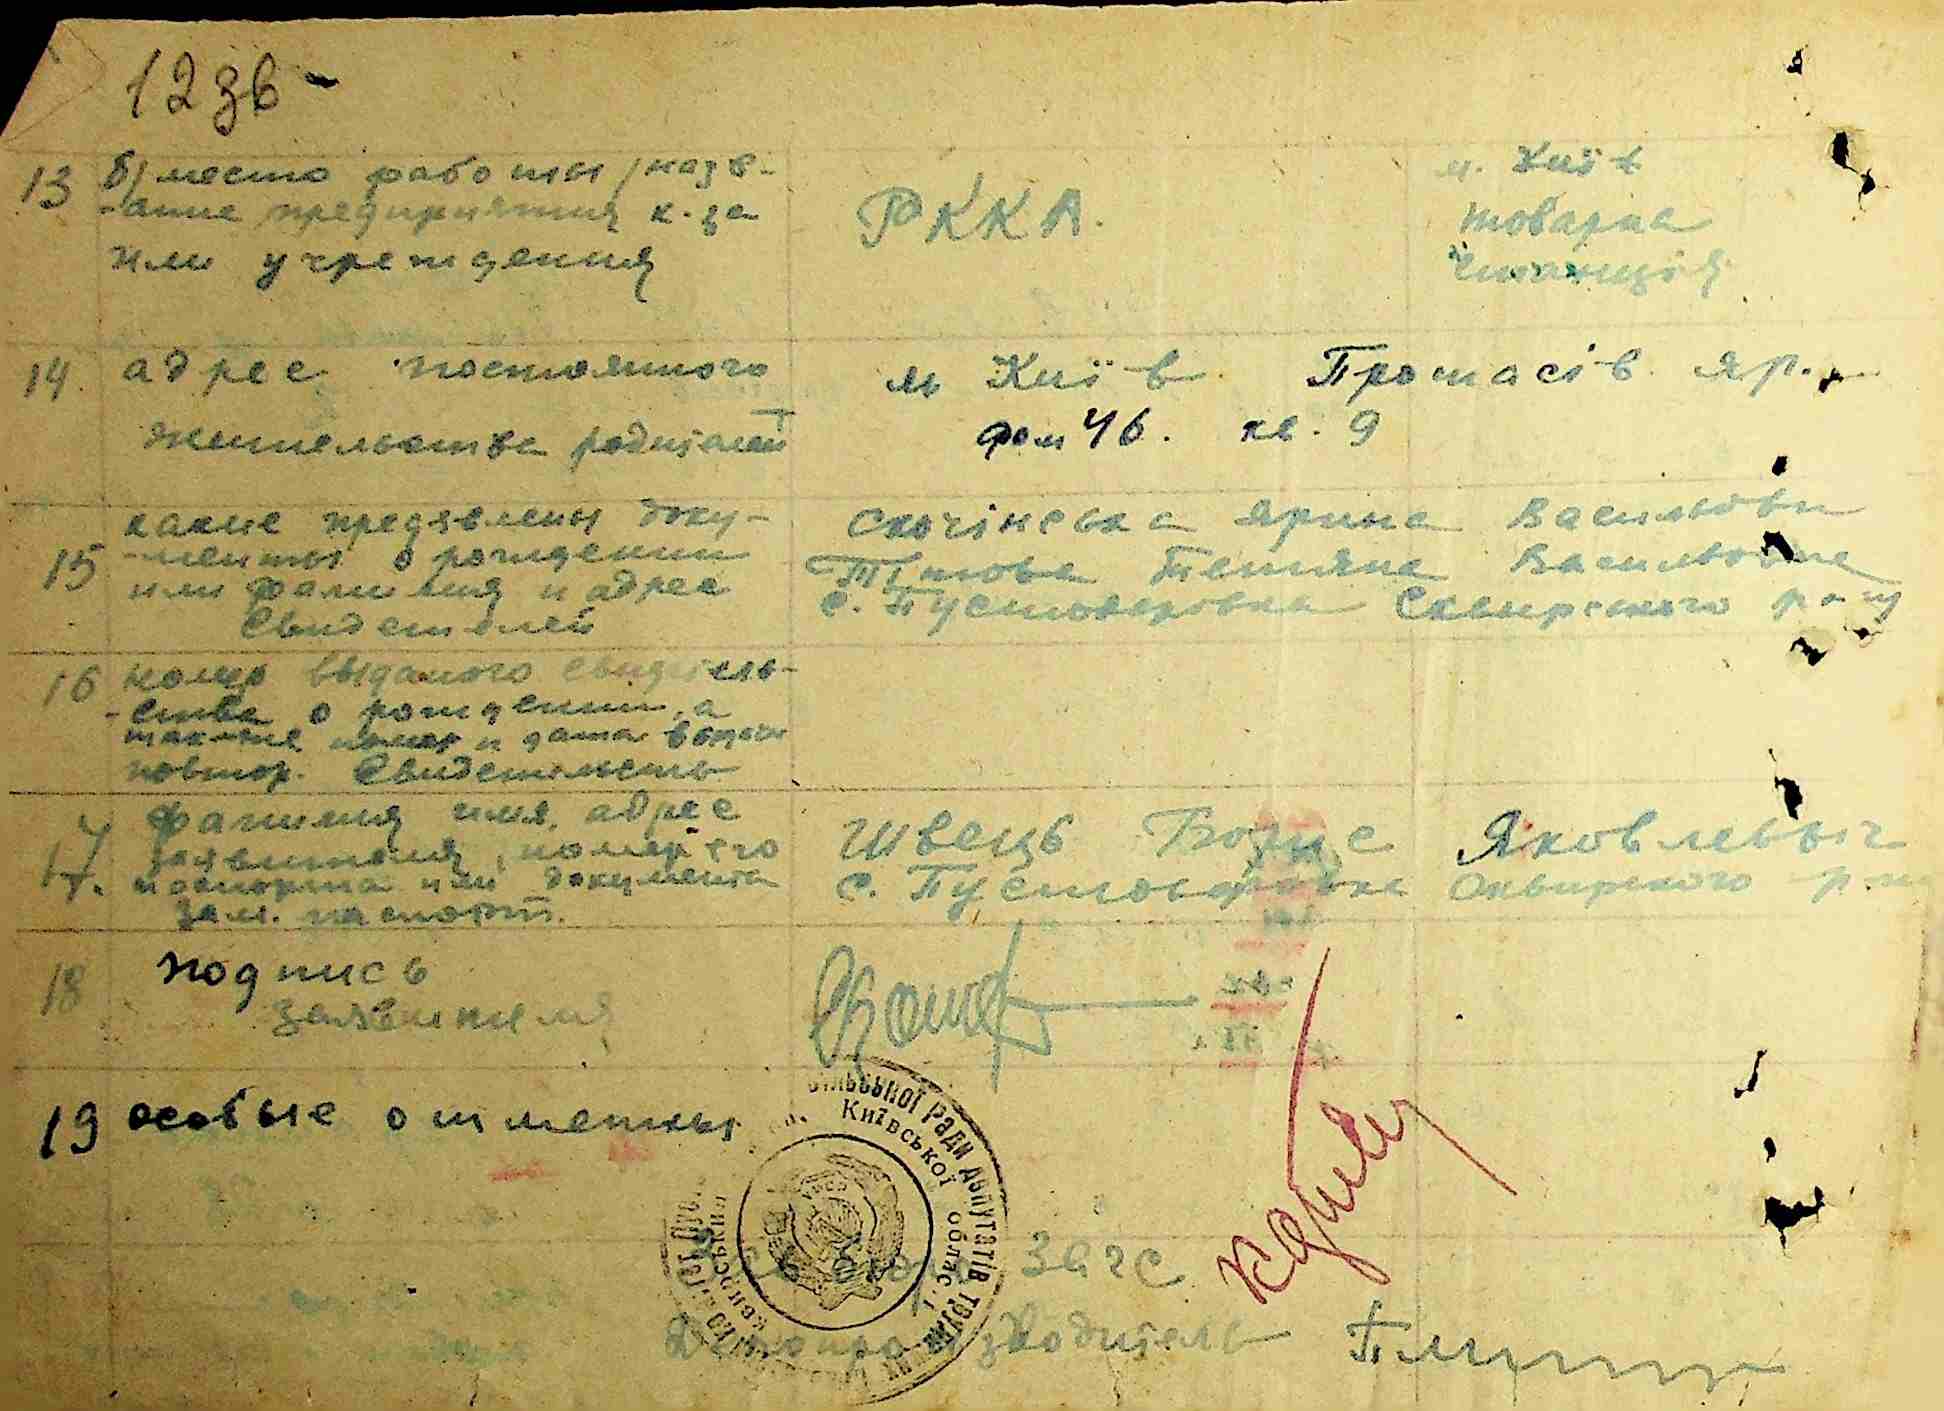 12 зв -
13 б) место работы (назв-
-ание предприятия к-за
или учреждения
РККА.
м. Київ
товарна
станція
14. адрес постоянного
жительства родителей
м Київ Протасів яр.
дом 46. кв. 9
15 какие предявлены доку-
-менты о рождении
или фамилия и адрес
свидетелей
Скочінська Ярина Васильовн
Тітова Тетяна Васильовна
с. Пустоваровка Сквирського р-ну
16 номер выданого свидетель-
-ства о рождении, а
также номер и дата выдачи
повтор. свидетельств
17. фамилия имя, адрес
заявителя, номер его
паспорта или документа
зам. паспорт.
Швець Борис Яковлевыч
с. Пустоваровка Сквирского р-на
18 подпись
заявителя
19 особые отметки
сільської ради депутатів труд
Київської облас.
ЗАГС
Делопроизводитель